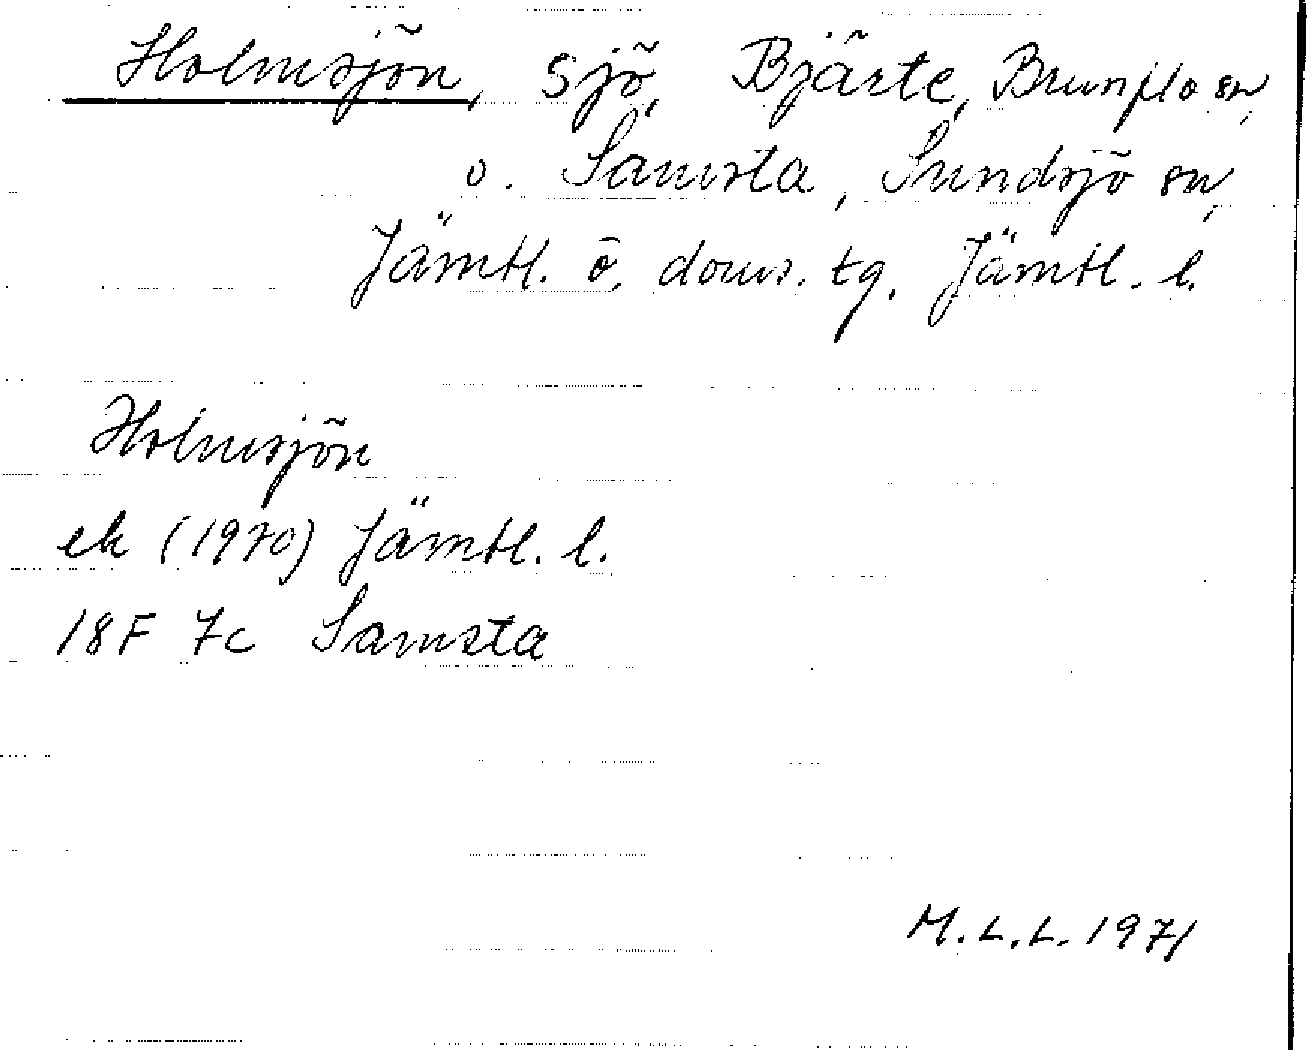 Holmsjön, sjö, Bjärte, Brunflo sn,
o. Samsta, Sundsjö sn,
Jämtl. ö. doms. tg. Jämtl. l.
Holmsjön
ek (1970) Jämtl. l.
18F 7c Samsta
M.L.L. 1971